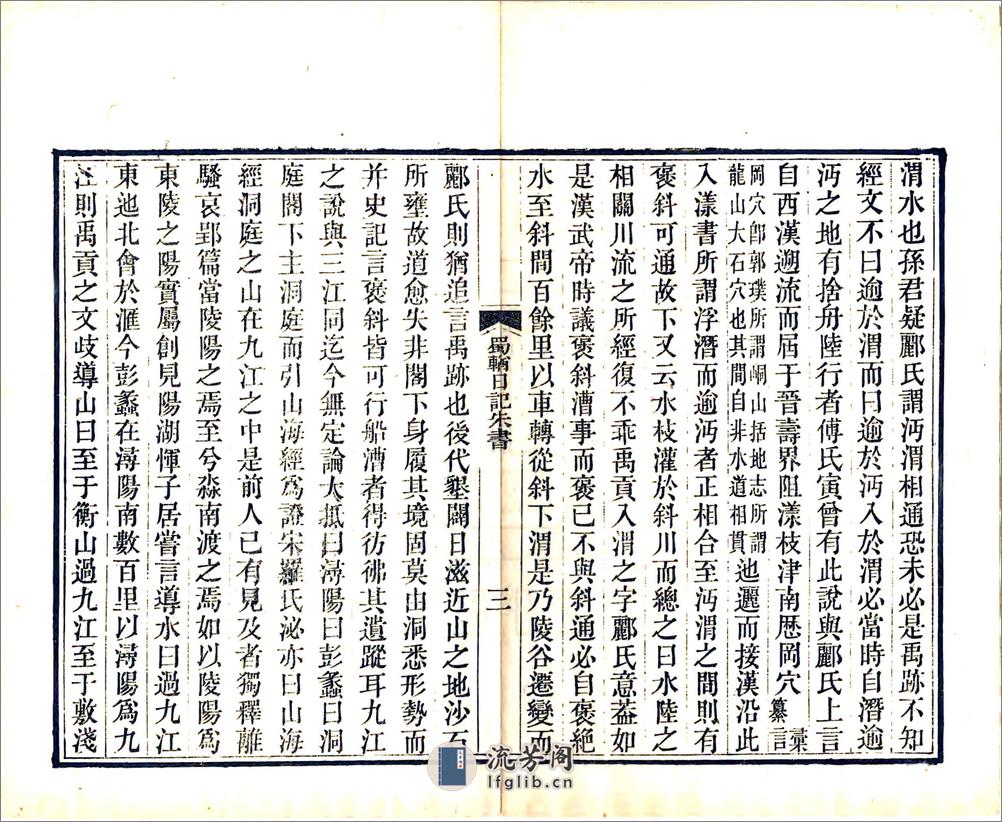 渭水也孫君疑酈氏謂沔渭相通恐未必是禹跡不知
經文不曰逾於渭而曰逾於沔入於渭必當時自潛逾
沔之地有捨舟陸行者傅氏寅曾有此說與酈氏上言
自西漢遡流而屆于晉壽界阻漾枝津南歷岡穴纂言
岡穴卽郭璞所謂峒山括地志所謂
龍山大石穴也其間自非水道相貫迆邐而接漢沿此
入漾書所謂浮潛而逾沔者正相合至沔渭之間則有
褒斜可通故下又云水枝灌於斜川而總之曰水陸之
相關川流之所經復不乖禹貢入渭之字酈氏意葢如
是漢武帝時議褒斜漕事而褒已不與斜通必自褒絶
水至斜間百餘里以車轉從斜下渭是乃陵谷遷變而
蜀輶日記朱書
三
酈氏則猶追言禹跡也後代墾闢日滋近山之地沙石
所壅故道愈失非閣下身履其境固莫由洞悉形勢而
幷史記言褒斜皆可行船漕者得彷彿其遺蹤耳九江
之說與三江同迄今無定論大抵曰潯陽曰彭蠡曰洞
庭閣下主洞庭而引山海經爲證宋羅氏泌亦曰山海
經洞庭之山在九江之中是前人已有見及者獨釋離
騷哀郢篇當陵陽之焉至兮淼南渡之焉如以陵陽爲
東陵之陽實屬創見陽湖惲子居嘗言導水曰過九江
東迆北會於滙今彭蠡在潯陽南數百里以潯陽爲九
江則禹貢之文歧導山曰至于衡山過九江至于敷淺
流芳阁
lfglib.cn